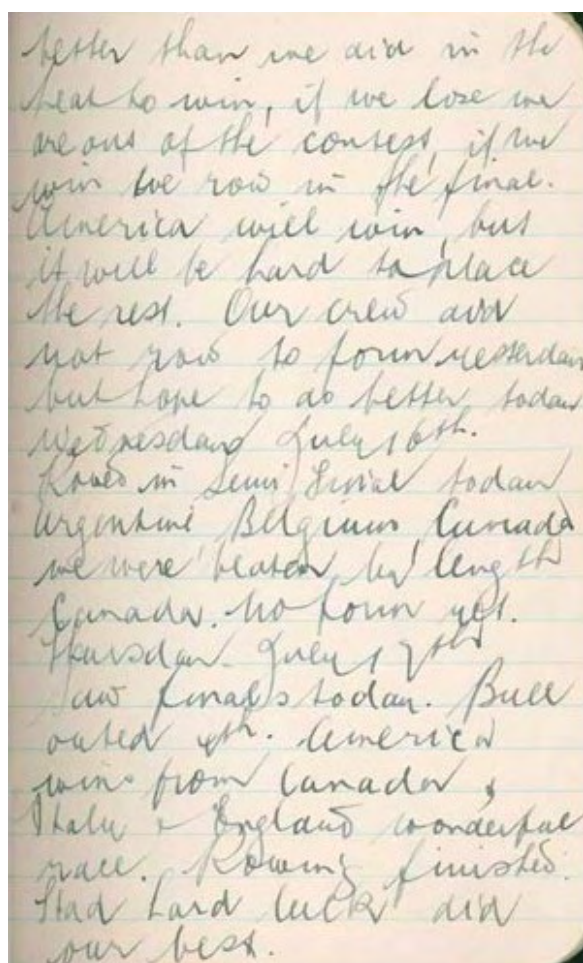 better than we did in the
heat to win, if we lose we
are out of the contest, if we
win we row in the final.
America will win, but
it will be hard to place
the rest. Our crew did
not row to form yesterday
but hope to do better today
Wednesday July 16th.
Rowed in Semi Final today
Argentine, Belgium, Canada
we were beaten by length
Canada. No form yet.
Thursday July 17th
Saw finals today. Bull
outed 4th. America
wins from Canada,
Italy & England wonderful
race. Rowing finished.
Had hard luck did
our best.